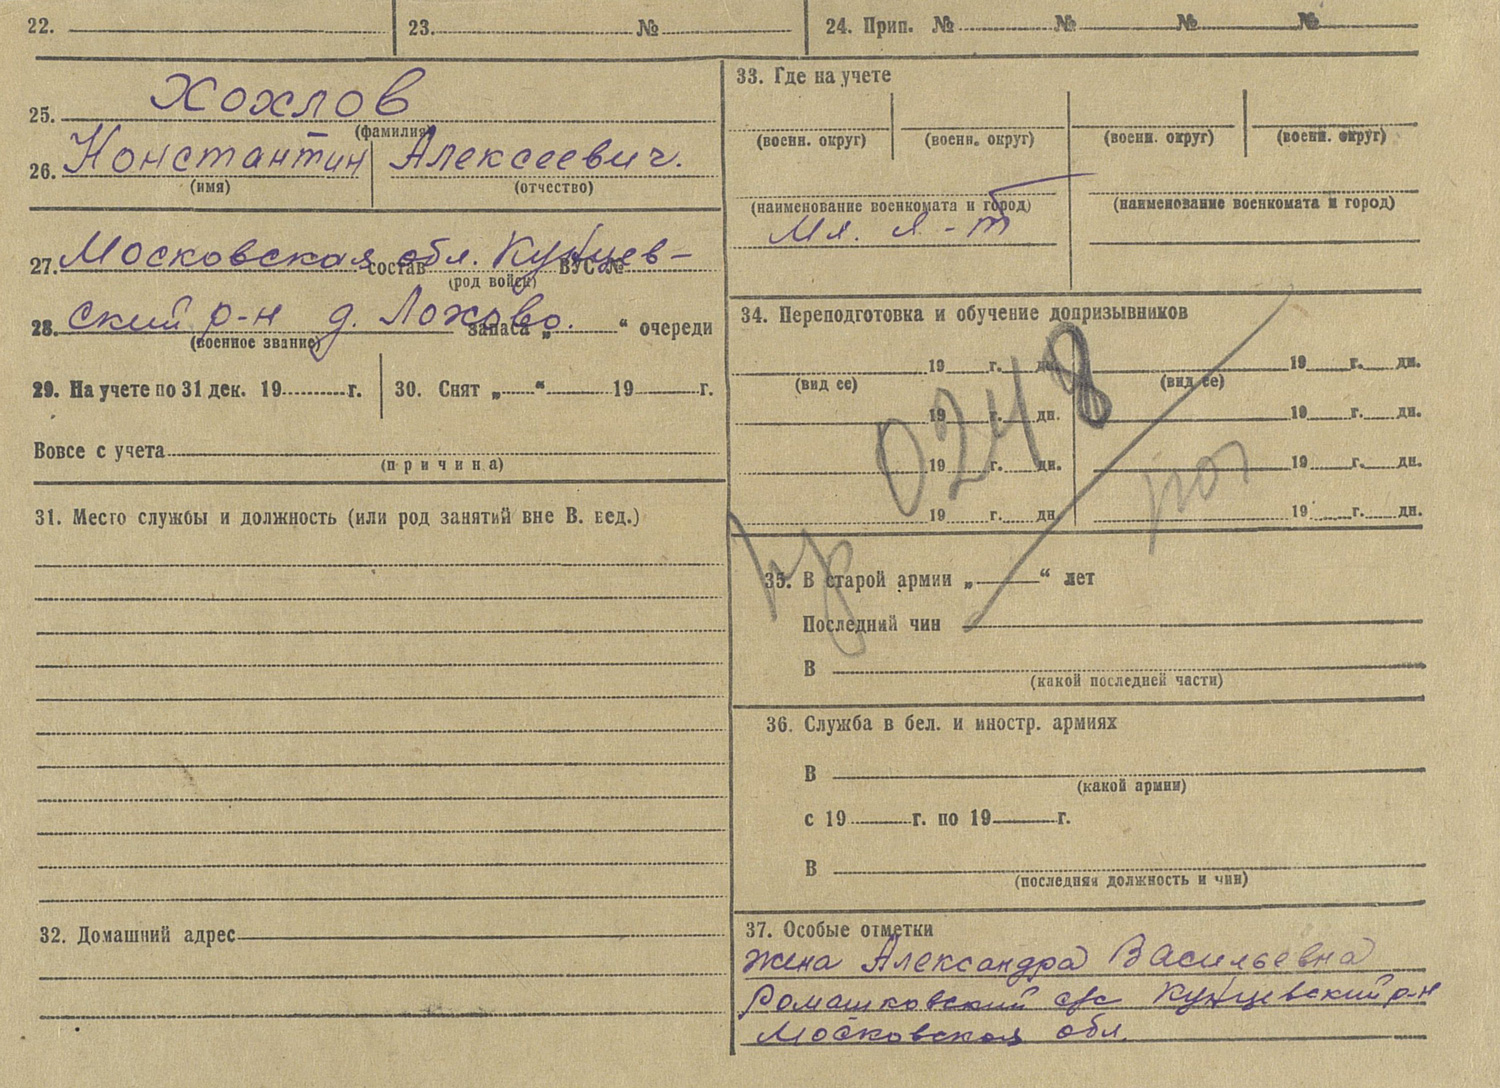 22.
23. №
24. Прип. № № № №
25. Хохлов
(фамилия)
26. Константин Алексеевич.
(имя) (отчество)
27. Московская обл. Кунцев-
состав ВУС №
(род войск)
28. ский р-н д. Лохово.
запаса „ “ очереди
(военное звание)
29. На учете по 31 дек. 19 г.
30. Снят „ “ 19 г.
Вовсе с учета
(причина)
31. Место службы и должность (или род занятий вне В. вед.)
32. Домашний адрес
33. Где на учете
(военн. округ) (военн. округ) (военн. округ) (военн. округ)
(наименование военкомата и город) (наименование военкомата и город)
Мл. л-т
34. Переподготовка и обучение допризывников
19 г. дн. 19 г. дн.
(вид ее) (вид ее)
19 г. дн. 19 г. дн.
19 г. дн. 19 г. дн.
19 г. дн. 19 г. дн.
0248
35. В старой армии „ “ лет
Последний чин
В
(какой последней части)
36. Служба в бел. и иностр. армиях
В
(какой армии)
с 19 г. по 19 г.
В
(последняя должность и чин)
37. Особые отметки
жена Александра Васильевна
Ромашковский с/с Кунцевский р-н
Московская обл.